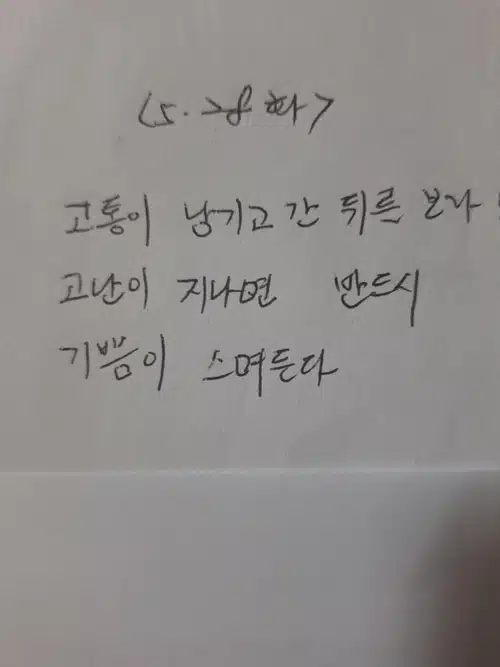 <5. 28 화>
고통이 남기고 간 뒤를 보라
고난이 지나면 반드시
기쁨이 스며든다